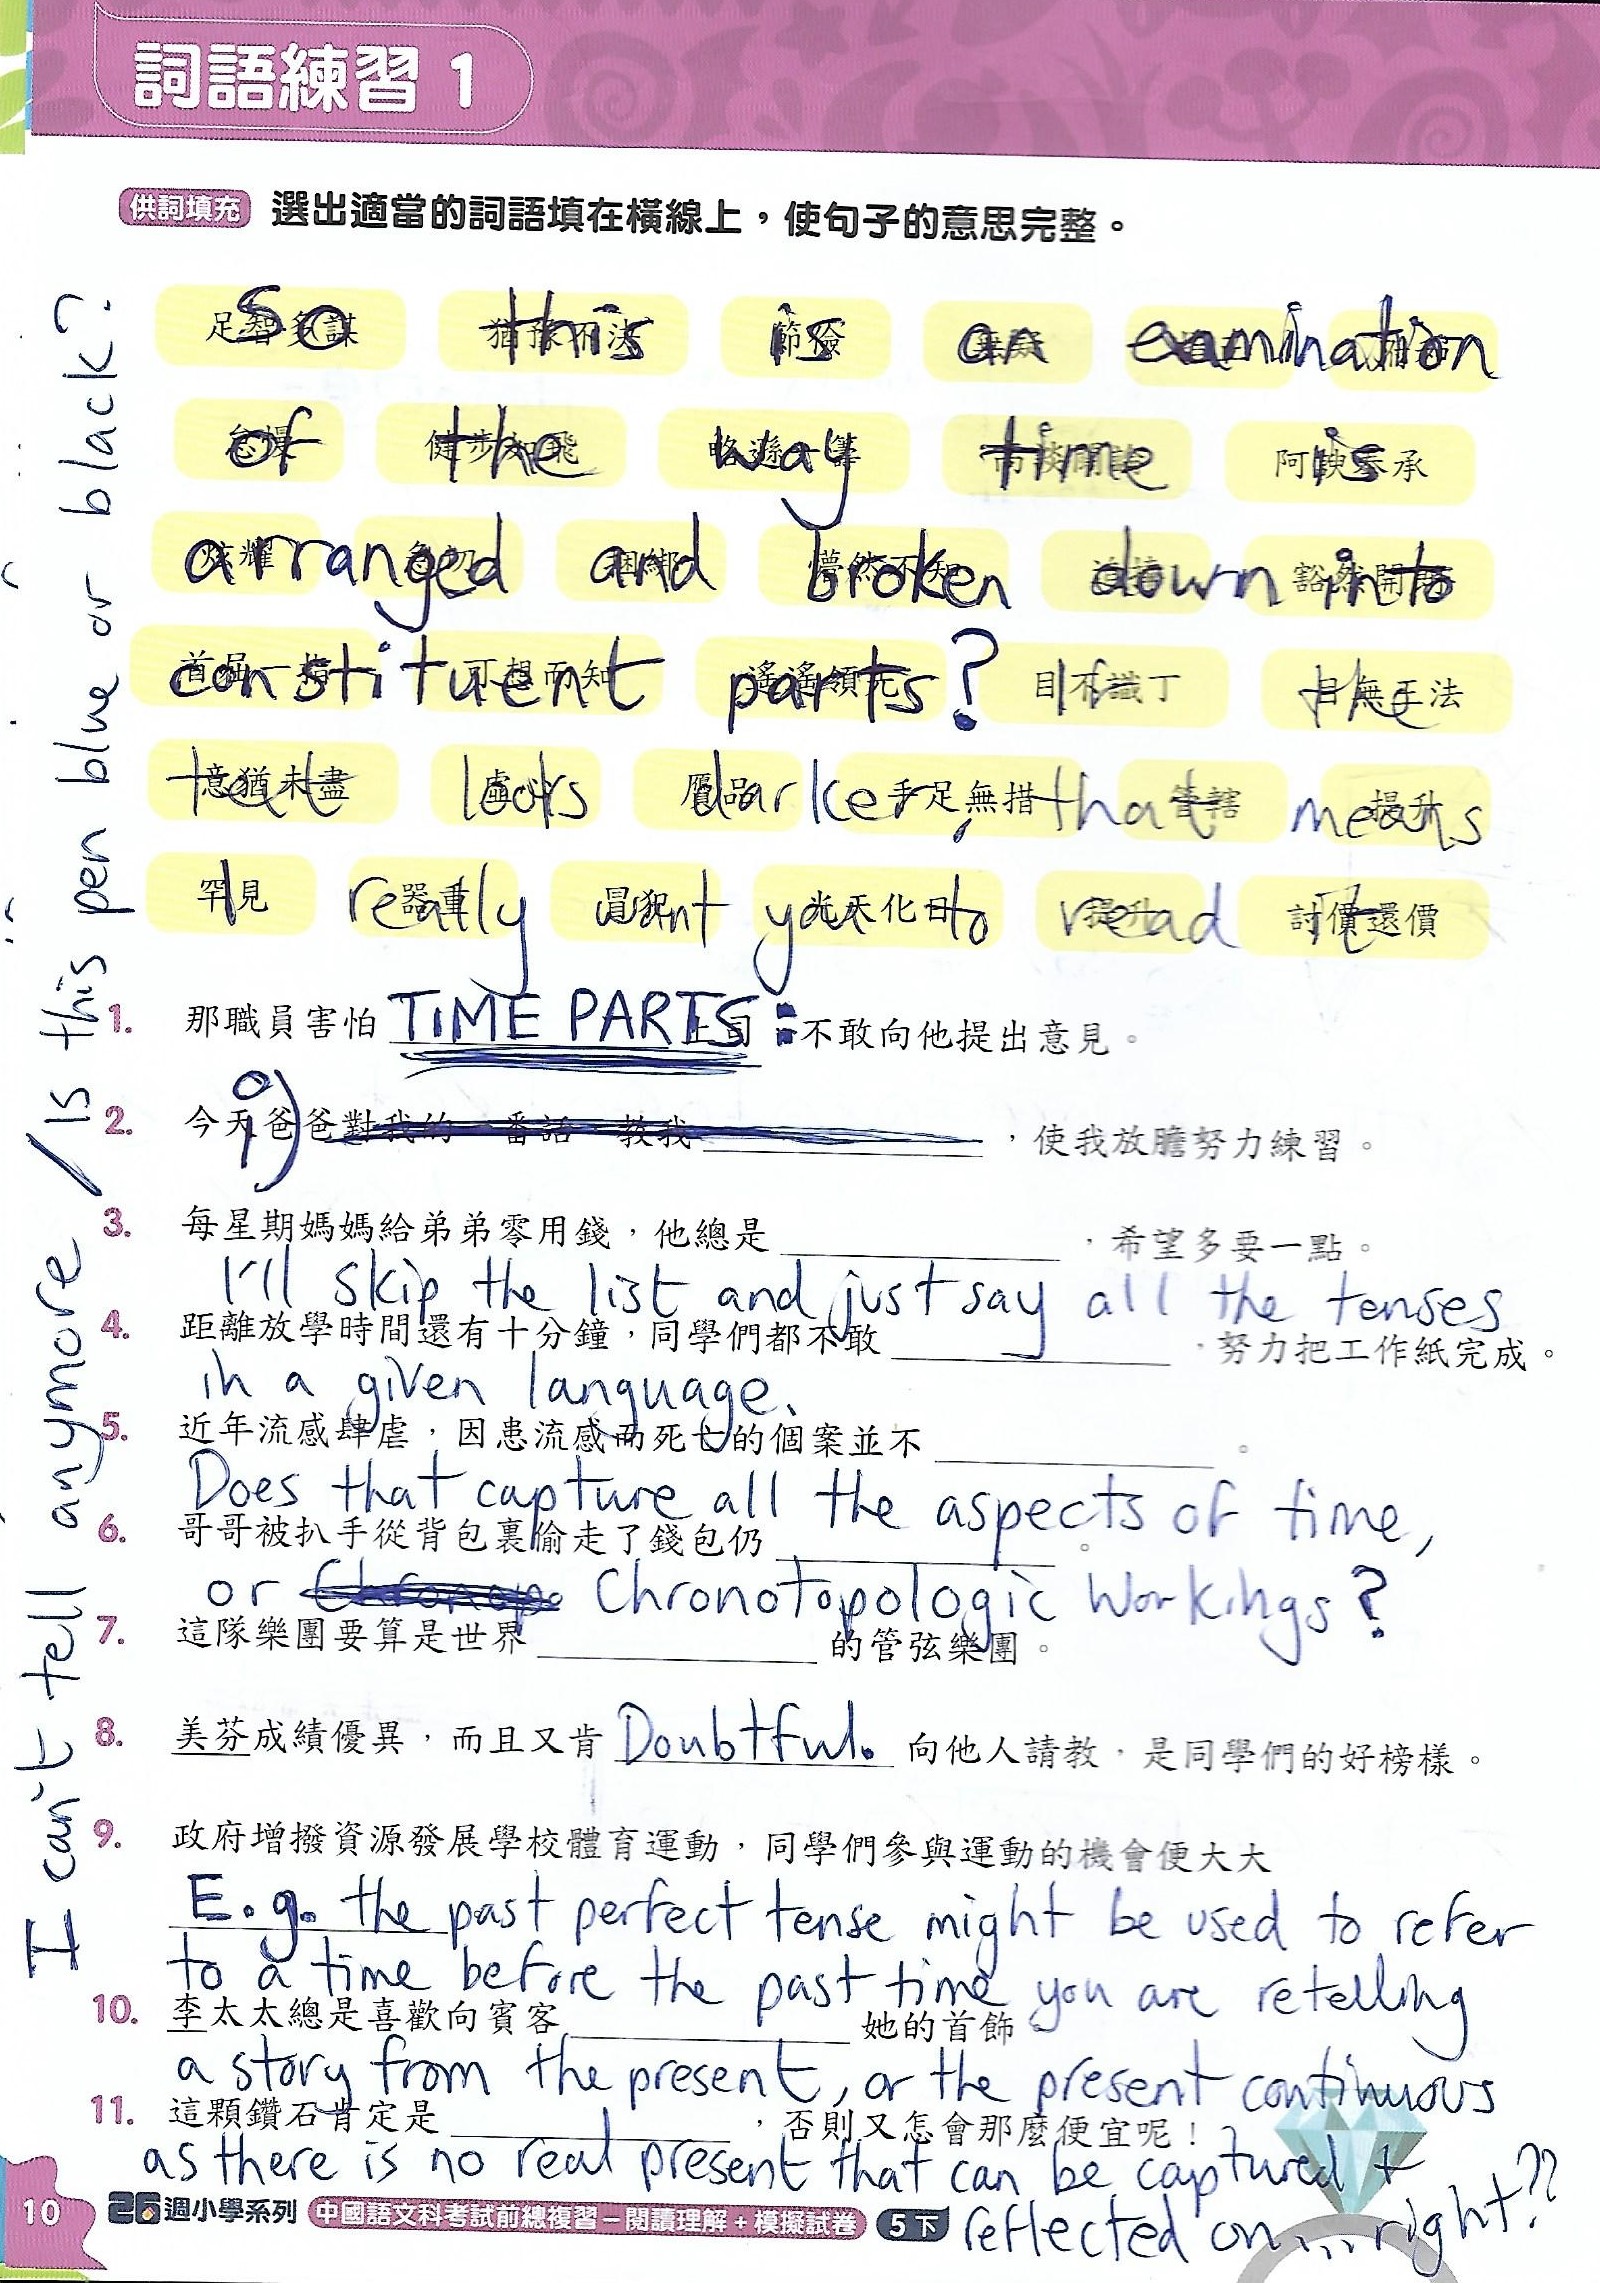 詞語練習 1
供詞填充 選出適當的詞語填在橫線上，使句子的意思完整。
So this is an examination
of the way time is
arranged and broken down into
constituent parts? If the
text looks darker, that means
I really want you to read it
足智多謀 猶豫不決 節儉
怠慢 健步如飛 略遜一籌 阿諛奉承
炫耀 捆綁 懵然不知 豁然開朗
首屈一指 可想而知 遙遙領先 目不識丁 目無王法
意猶未盡 虛心 贋品 手足無措 管轄 提升
罕見 器重 冒犯 光天化日 提升 討價還價
1. 那職員害怕 TIME PARTS: 上司 不敢向他提出意見。
2. 今天爸爸對我的一番話，教我 ，使我放膽努力練習。
i)
3. 每星期媽媽給弟弟零用錢，他總是 ，希望多要一點。
I'll skip the list and just say all the tenses
4. 距離放學時間還有十分鐘，同學們都不敢 ，努力把工作紙完成。
in a given language.
5. 近年流感肆虐，因患流感而死亡的個案並不 。
Does that capture all the aspects of time,
6. 哥哥被扒手從背包裏偷走了錢包仍 。
or Chronotopologic Workings?
7. 這隊樂團要算是世界 的管弦樂團。
8. 美芬成績優異，而且又肯 Doubtful. 向他人請教，是同學們的好榜樣。
9. 政府增撥資源發展學校體育運動，同學們參與運動的機會便大大
E.g. the past perfect tense might be used to refer
to a time before the past time you are retelling
10. 李太太總是喜歡向賓客 她的首飾。
a story from the present, or the present continuous
11. 這顆鑽石肯定是 ，否則又怎會那麼便宜呢！
as there is no real present that can be captured +
reflected on.... right??
10 26週小學系列 中國語文科考試前總複習－閱讀理解＋模擬試卷 5下
I can't tell anymore / Is this pen blue or black?